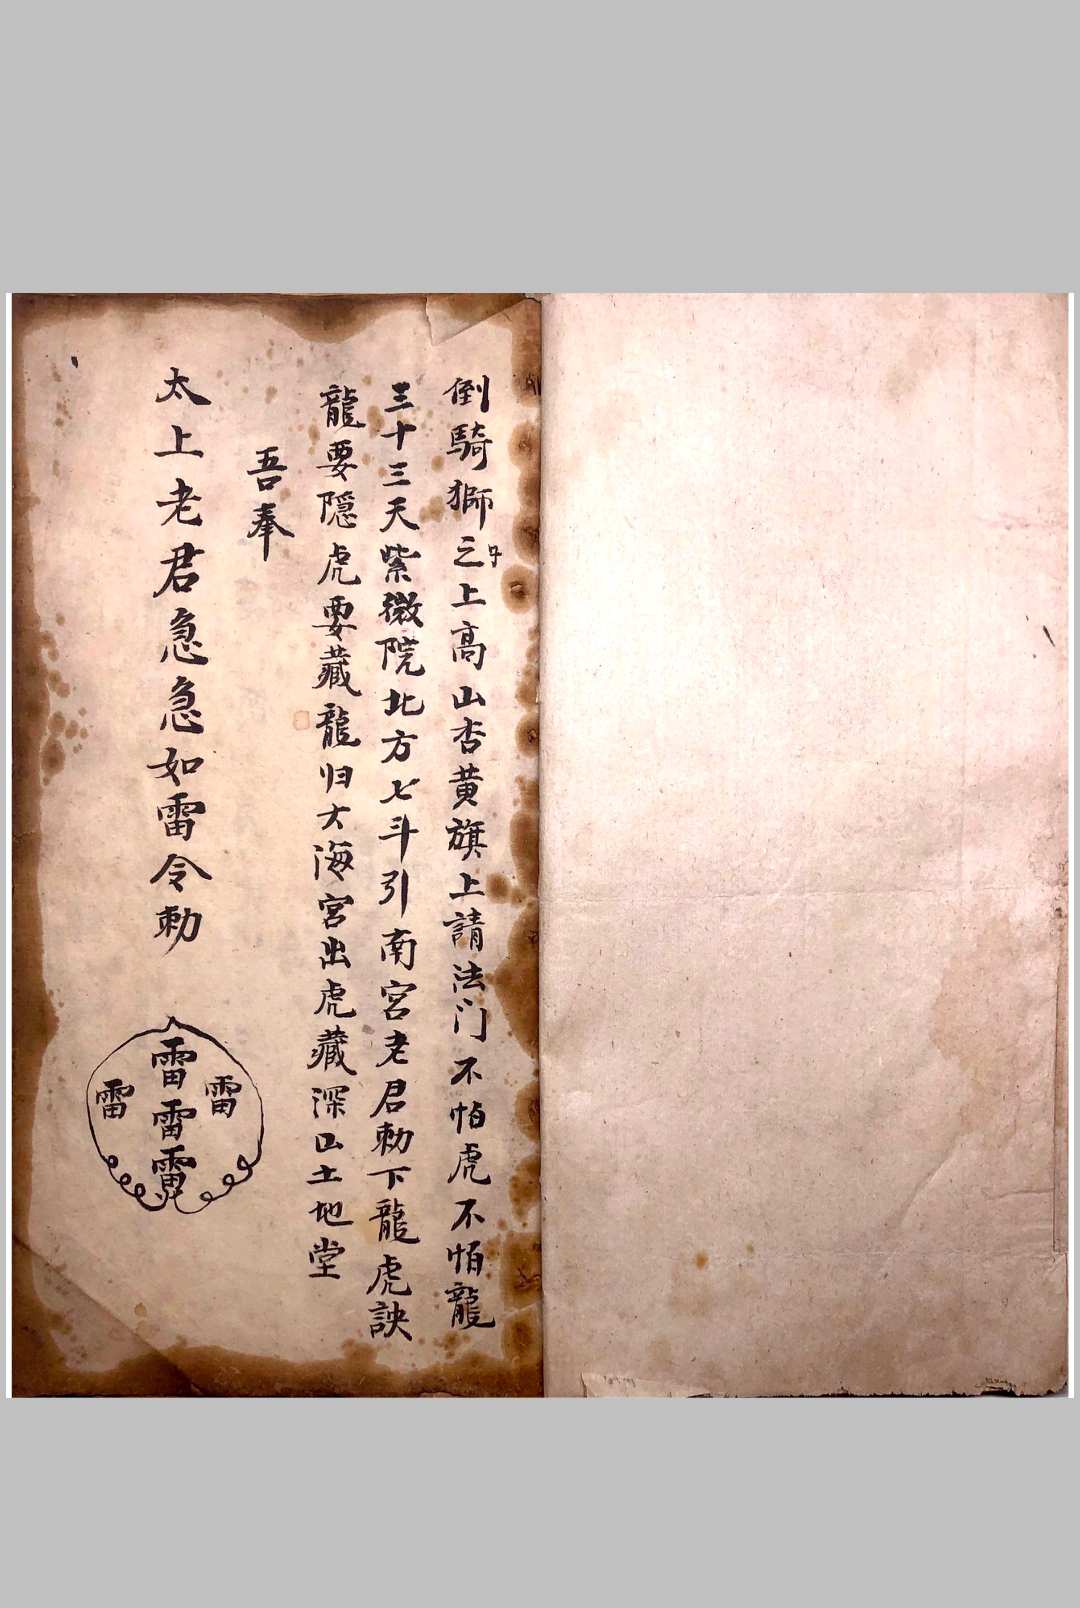 倒騎獅子上高山杏黄旗上請法门不怕虎不怕龍
三十三天紫微院北方七斗引南宮老君勅下龍虎訣
龍要隠虎要藏龍归大海宮出虎藏深山土地堂
吾奉
太上老君急急如雷令勅
雷
雷雷雷
雷